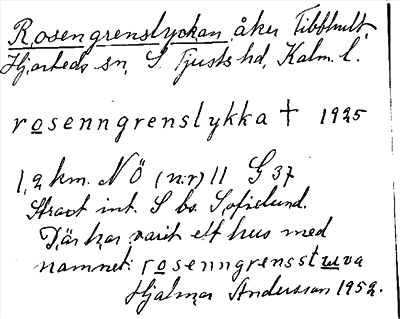 Rosengrenslyckan åker Tibbhult.
Hjorteds sn, S. Tjusts hd, Kalm. l.
rosenngrenslykka † 1925
1,2 km. NÖ (nr) 11 G 37
Stravt int. S bs. Sofielund.
Där har varit ett hus med
namnet: rosenngrensstuva
Hjalmar Andersson 1952.